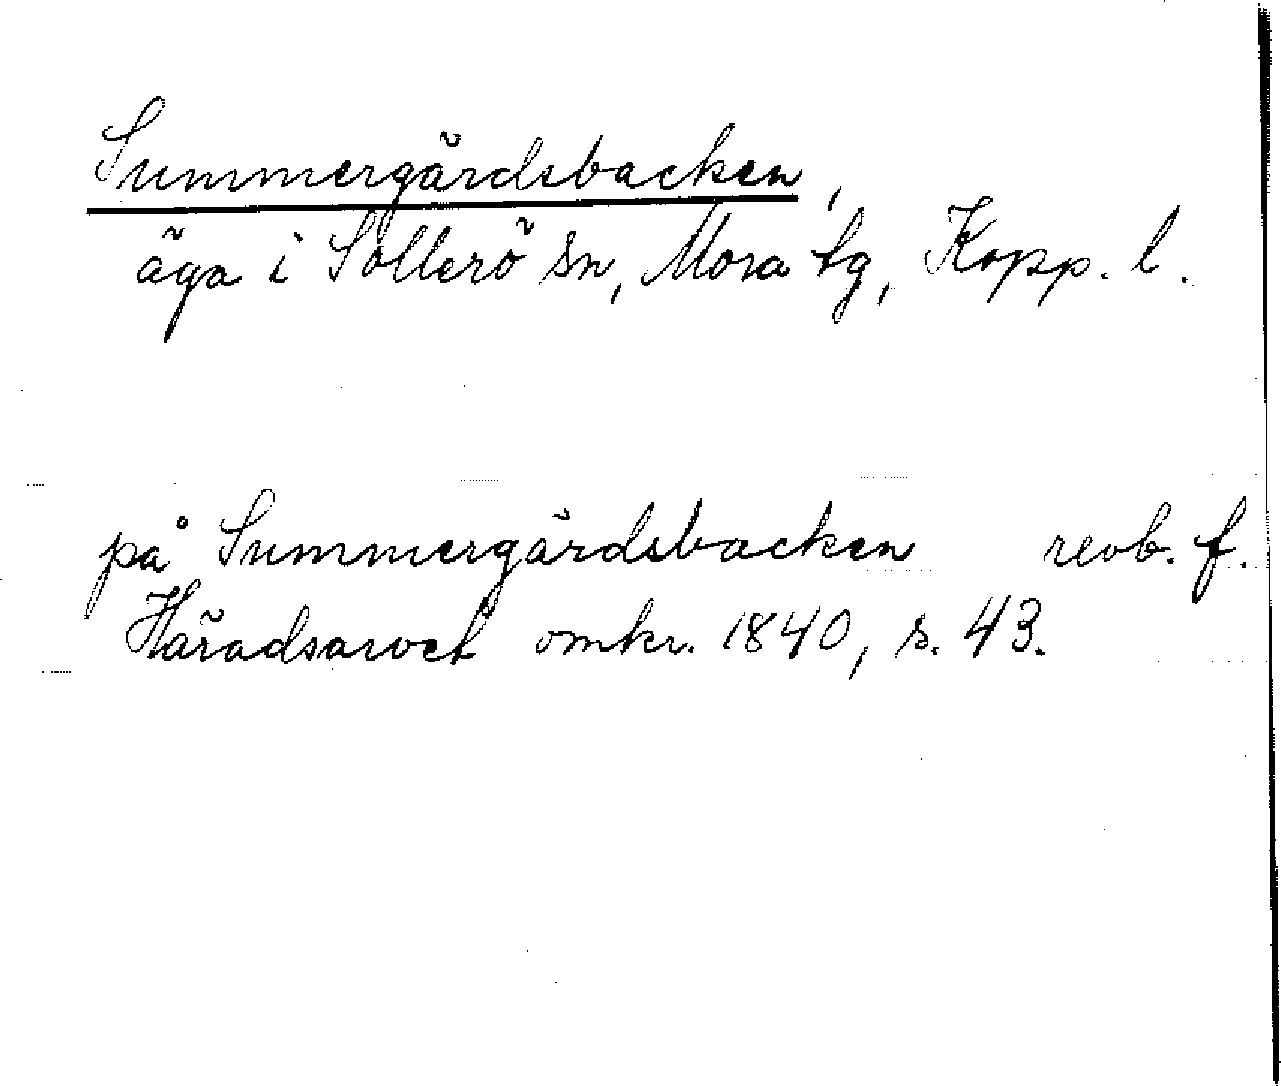 Summergärdsbacken,
äga i Sollerö sn, Mora tg, Kopp. l.
på Summergärdsbacken revb. f.
Häradsarvet omkr. 1840, s. 43.